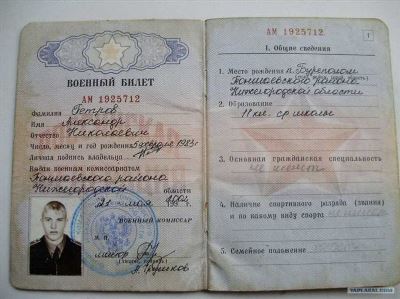 ВОЕННЫЙ БИЛЕТ
АМ 1925712
Фамилия Петров
Имя Александр
Отчество Николаевич
Число, месяц и год рождения 5 февраля 1983г
Личная подпись владельца
Выдан военным комиссариатом
Тоншаевского района
Нижегородской области
21 мая
ВОЕННЫЙ КОМИССАР
М. П.
майор
АМ 1925712
1
I. Общие сведения
1. Место рождения п. Буреполом
Тоншаевского района
Нижегородской области
2. Образование
11 кл. ср школы
3. Основная гражданская специальность
не имеет
4. Наличие спортивного разряда (звания)
и по какому виду спорта не имеет
5. Семейное положение
YAPLAKAL.COM